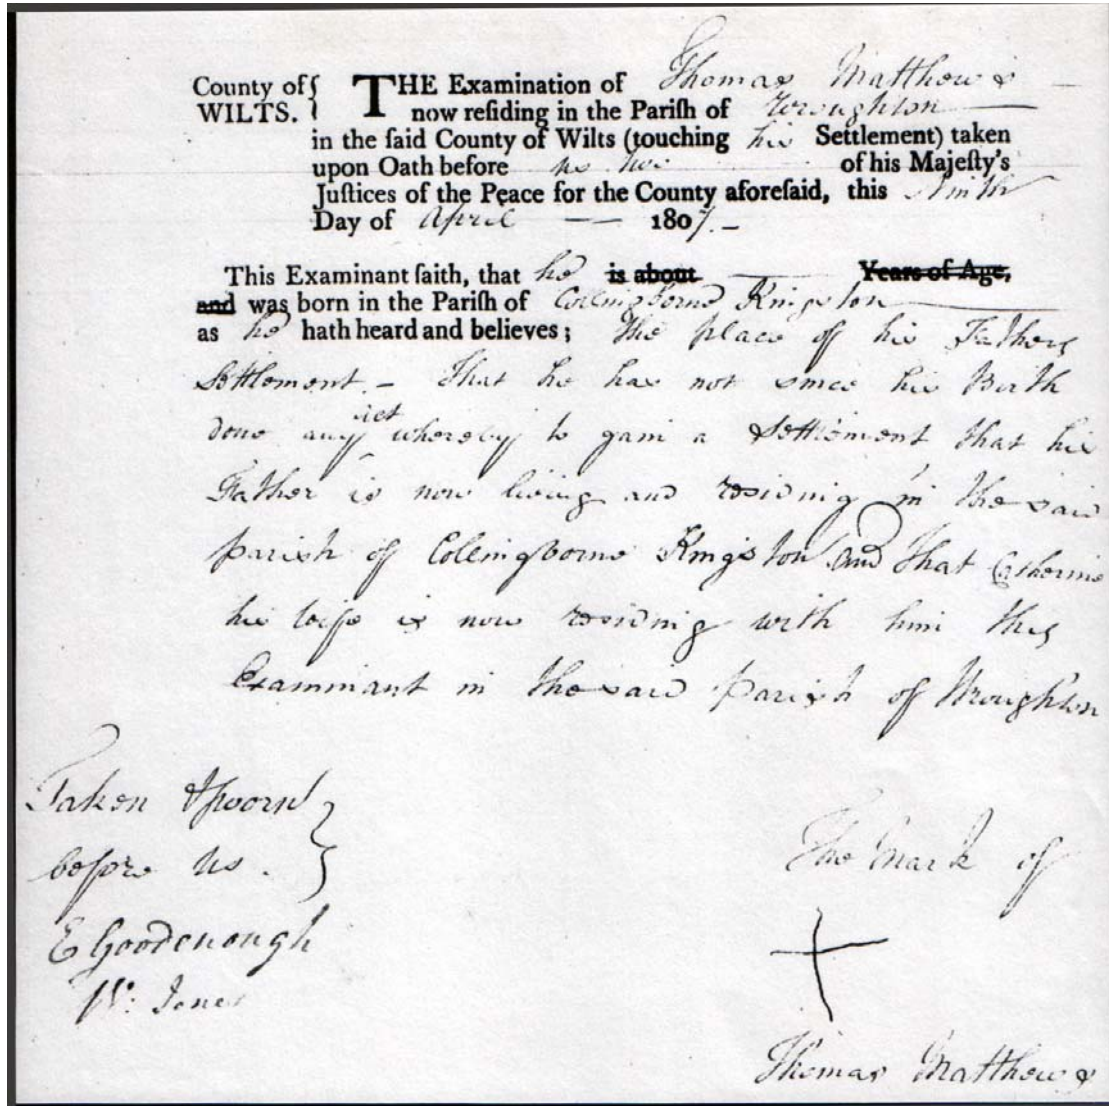 County of WILTS. { THE Examination of Thomas Matthews
now reſiding in the Pariſh of Wroughton
in the ſaid County of Wilts (touching his Settlement) taken
upon Oath before us two of his Majeſty's
Juſtices of the Peace for the County aforeſaid, this Ninth
Day of April 1807.
This Examinant ſaith, that he is about Years of Age,
and was born in the Pariſh of Collingborne Kingston
as he hath heard and believes; the place of his Fathers
Settlement - that he has not since his Birth
done any act whereby to gain a Settlement that his
Father is now living and residing in the said
parish of Collingborne Kingston and that Catherine
his Wife is now residing with him this
Examinant in the said parish of Wroughton
Taken & sworn
before us.
E Goodenough
Wm: Jones
The Mark of
Thomas Matthews